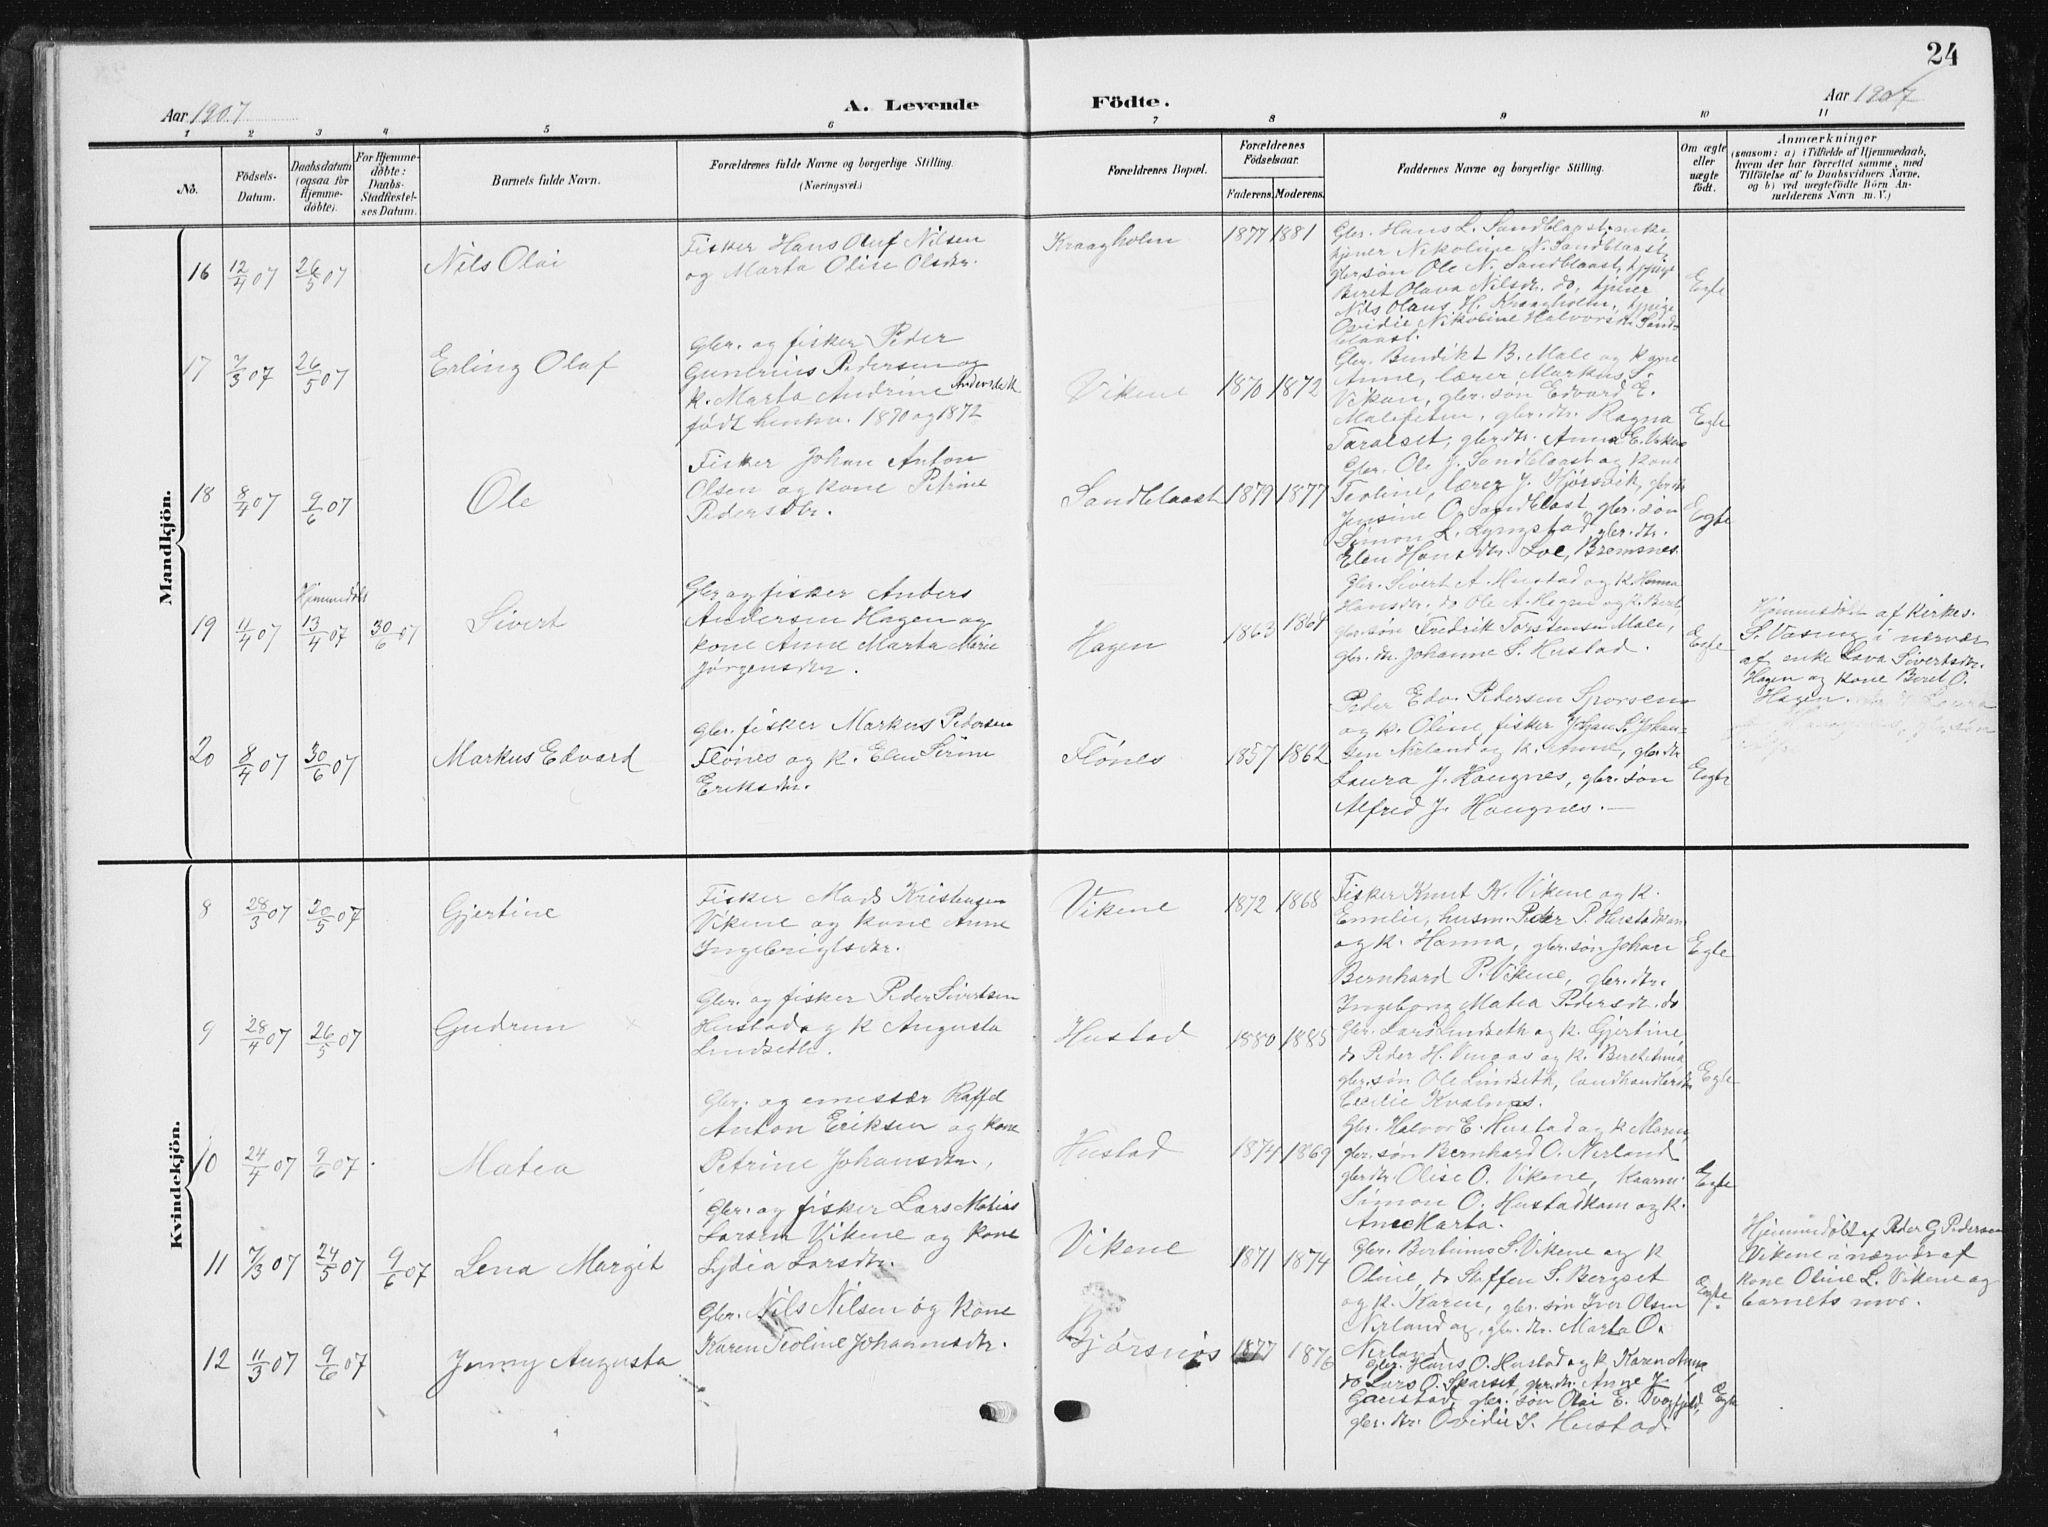 24
Aar 1907
A. Levende
Födte.
Aar 1907
1 2 3 4 5 6 7 8 9 10 11
No.
Födsels-
Datum.
Daabsdatum
(ogsaa for
Hjemme-
döbte).
For Hjemme-
döbte:
Daabs-
Stadfæstel-
ses Datum.
Barnets fulde Navn.
Forældrenes fulde Navne og borgerlige Stilling.
(Næringsvei.)
Forældrenes Bopæl.
Forældrenes
Födselsaar.
Faderens. Moderens.
Faddernes Navne og borgerlige Stilling.
Om ægte
eller
uægte
födt.
Anmærkninger
(saasom: a) i Tilfælde af Hjemmedaab,
hvem der har forrettet samme, med
Tilföielse af to Daabsvidners Navne,
og b) ved uægtefödte Börn An-
melderens Navn m. V.)
Mandkjön.
16 12/4 07 26/5 07
Nils Olai
Fisker Hans Oluf Nilsen
og Marta Olise Olsdtr.
Kraagholm
1877 1881
Gbr. Hans L. Sandblaast, enke
Nikoline N. Sandblaast,
gbr.søn Ole N. Sandblaast,
Beret Olava Nilsdtr. do,
Nils Olaus H. Kraagholm,
Ovidie Nikoline Halvorsdtr. Sand-
blaast.
Egte
17 7/3 07 26/5 07
Erling Olaf
Gbr. og fisker Peder
Gunerius Pedersen og
k. Marta Andrine Andersdtr.
født henhv. 1870 og 1872
Vikene
1870 1872
Gbr. Bendikt B. Male og k
Anne, lærer Markus S.
Vikan, gbr. søn Edvard E.
gbr. dtr. Ragna
Taralset, gbr.dtr. Anna E. Vikene
Egte
18 8/4 07 9/6 07
Ole
Fisker Johan Anton
Olsen og kone Petrine
Pedersdtr.
Sandblaast
1879 1877
Gbr. Ole J. Sandblaast og kone
Teoline, lærer J. gbr.dtr
Jensine O. Sandblast, gbr. søn
Simon L. Lyngstad, gbr. dtr.
Elen Hansdtr. Loe, Bremsnes.
Egte
19 11/4 07
Hjemmedøbt
13/4 07 30/6 07
Sivert
Gbr og fisker Anders
Andersen Hagen og
kone Anne Marta Marie
Jørgensdtr.
Hagen
1863 1864
Gbr. Sivert A. Hustad og k. Hanna
Hansdtr. do Ole A. Hagen og k. Beret,
gbr. søn Fredrik Torstensen Male,
gbr. dtr. Johanne S. Hustad.
Egte
Hjemmedøbt af kirkes.
S. i nærvær
af enke Sivertsdtr.
Hagen og kone Beret O.
Hagen.
20 8/4 07 30/6 07
Markus Edvard
gbr. fisker Markus Pedersen
Flønes og k. Elen Serine
Eriksdtr.
Flønes
1857 1862
Peder Edv. Pedersen
og k. Oline, fisker Johan S. Johan-
sen Nerland og k. Anne, gbr. dtr
Laura J. Haugnes, gbr. søn
Alfred J. Haugnes.
Egte
Kvindekjön.
8 28/3 07 20/5 07
Gjertine
Fisker Mads Kristensen
Vikene og kone Anne
Ingebrigtsdtr.
Vikene
1872 1868
Fisker Knut K. Vikene og k.
Emelie, husm. Peder P. Hustadkam
og k. Hanna, gbr. søn Johan
Bernhard P. Vikene, gbr. dtr.
Ingeborg Matea Pedersdtr. do
Egte
9 28/4 07 26/5 07
Gudrun
Gbr. og fisker Peder Sivertsen
Hustad og k Augusta
Lindseth.
Hustad
1880 1885
Gbr. Lars Lindseth og k. Gjertine,
do Peder H. og k.
gbr. søn Ole Lindseth, landhandlerdtr.
Cecilie Kvalnes.
Egte
10 24/4 07 9/6 07
Matea
Gbr. og emissær Raffel
Anton Eriksen og kone
Petrine Johansdtr.
Hustad
1874 1869
Gbr. Halvor E. Hustad og k Maren,
gbr. søn Bernhard O. Nerland
gbr. dtr. Olise O. Vikene,
Simon O. Hustadkam og k.
Ane Marta.
Egte
11 7/3 07 24/5 07 9/6 07
Lena Margit
Gbr. og fisker Lars Matias
Larsen Vikene og kone
Lydia Larsdtr.
Vikene
1871 1874
Gbr. S. Vikene og k
Oline, do Steffen S. Bergset
og k. Karen, gbr. søn Iver Olsen
gbr. dtr. Marta O.
Nerland
Egte
Hjemmedøbt af Peder G Pedersen
Vikene i nærvær af
kone Oline L. Vikene og
barnets mor.
12 11/3 07 9/6 07
Jenny Augusta
Gbr. Nils Nilsen og kone
Karen Teoline Johannesdtr.
Bjørsnøs
1877 1876
Gbr. Hans O. Hustad og k Karen Anna,
do Lars O. gbr. dtr. Anne J.
Gaustad, gbr. søn Olai E.
gbr. dtr. Ovidie J. Hustad.
Egte